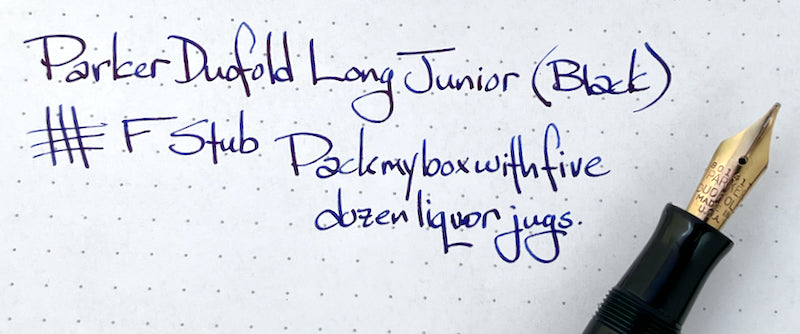 Parker Duofold Long Junior (Black)
F Stub Pack my box with five
dozen liquor jugs.
PARKER
DUOFOLD
MADE
U.S.A.